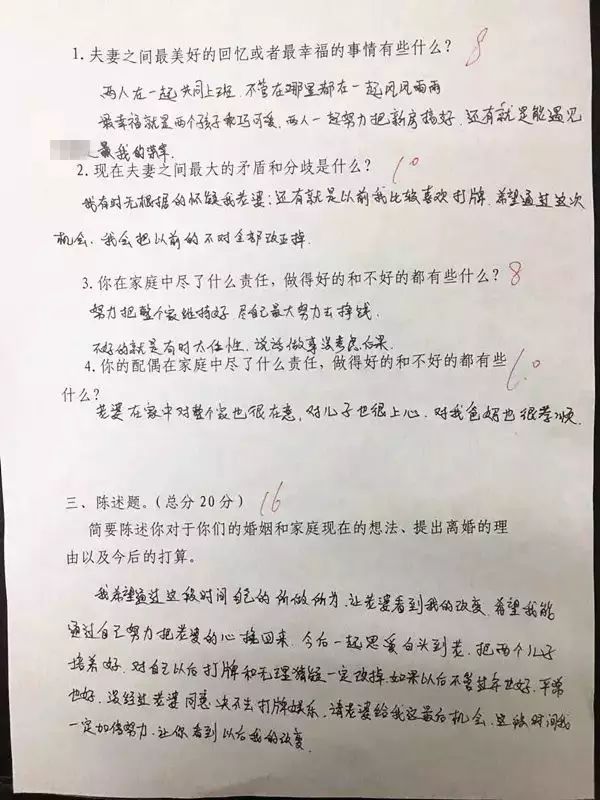 1. 夫妻之间最美好的回忆或者最幸福的事情有些什么？ 8
两人在一起共同上班，不管在哪里都在一起风风雨雨
最幸福就是两个孩子乖巧可爱，两人一起努力把新房搞好，还有就是能遇见
是我的荣幸
2. 现在夫妻之间最大的矛盾和分歧是什么？ 10
我有时无根据的怀疑我老婆；还有就是以前我比较喜欢打牌，希望通过这次
机会，我会把以前的不对全部改正掉．
3. 你在家庭中尽了什么责任，做得好的和不好的都有些什么？ 8
努力把整个家维持好，尽自己最大努力去挣钱
不好的就是有时太任性，说话做事没考虑后果
4. 你的配偶在家庭中尽了什么责任，做得好的和不好的都有些
什么？
老婆在家中对整个家也很在意，对儿子也很上心，对我爸妈也很孝顺
三、陈述题。（总分20分） 16
简要陈述你对于你们的婚姻和家庭现在的想法、提出离婚的理
由以及今后的打算。
我希望通过这段时间自己的所做所为，让老婆看到我的改变，希望我能
通过自己努力把老婆的心挽回来，今后一起恩爱白头到老，把两个儿子
培养好，对自己以后打牌和无理猜疑一定改掉，如果以后不管过年也好，平常
也好，没经过老婆同意决不去打牌娱乐，请老婆给我这最后机会，这段时间我
一定加倍努力，让你看到以后我的改变．